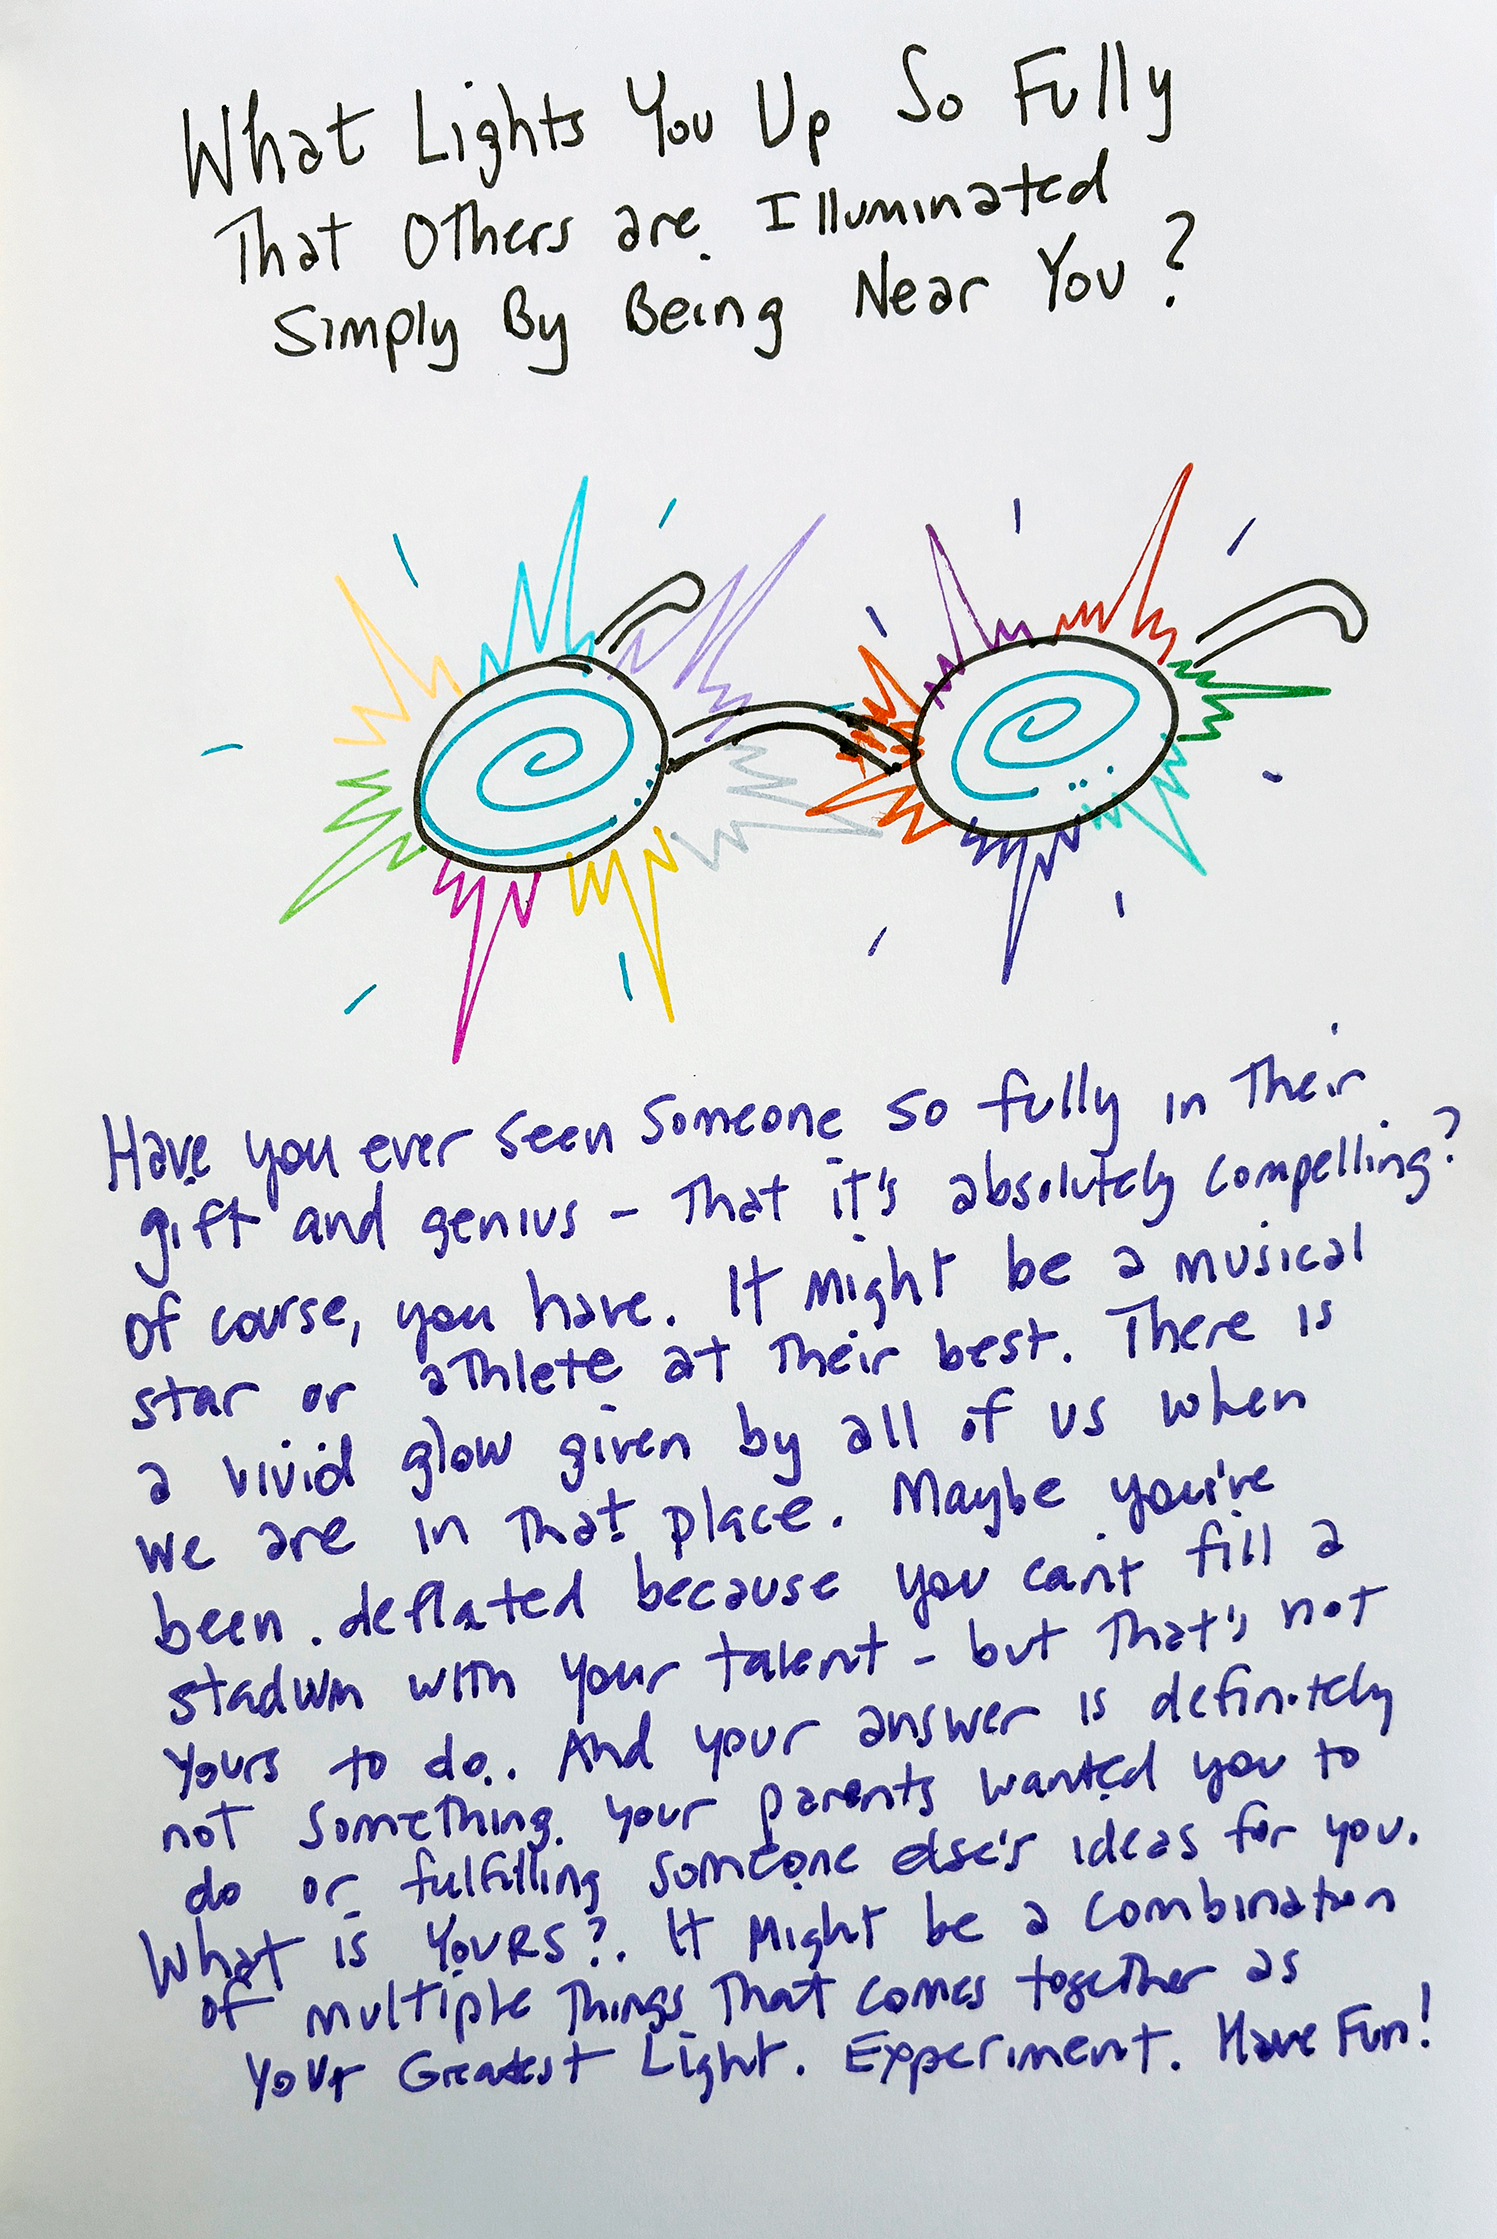 What Lights You Up So Fully
That Others are Illuminated
Simply By Being Near You?
Have you ever seen someone so fully in their
gift and genius - that it's absolutely compelling?
of course, you have. It might be a musical
star or athlete at their best. There is
a vivid glow given by all of us when
we are in that place. Maybe you've
been deflated because you can't fill a
stadium with your talent - but that's not
yours to do. And your answer is definitely
not something your parents wanted you to
do or fulfilling someone else's ideas for you.
What is YOURS? It might be a combination
of multiple things that comes together as
Your Greatest Light. Experiment. Have Fun!